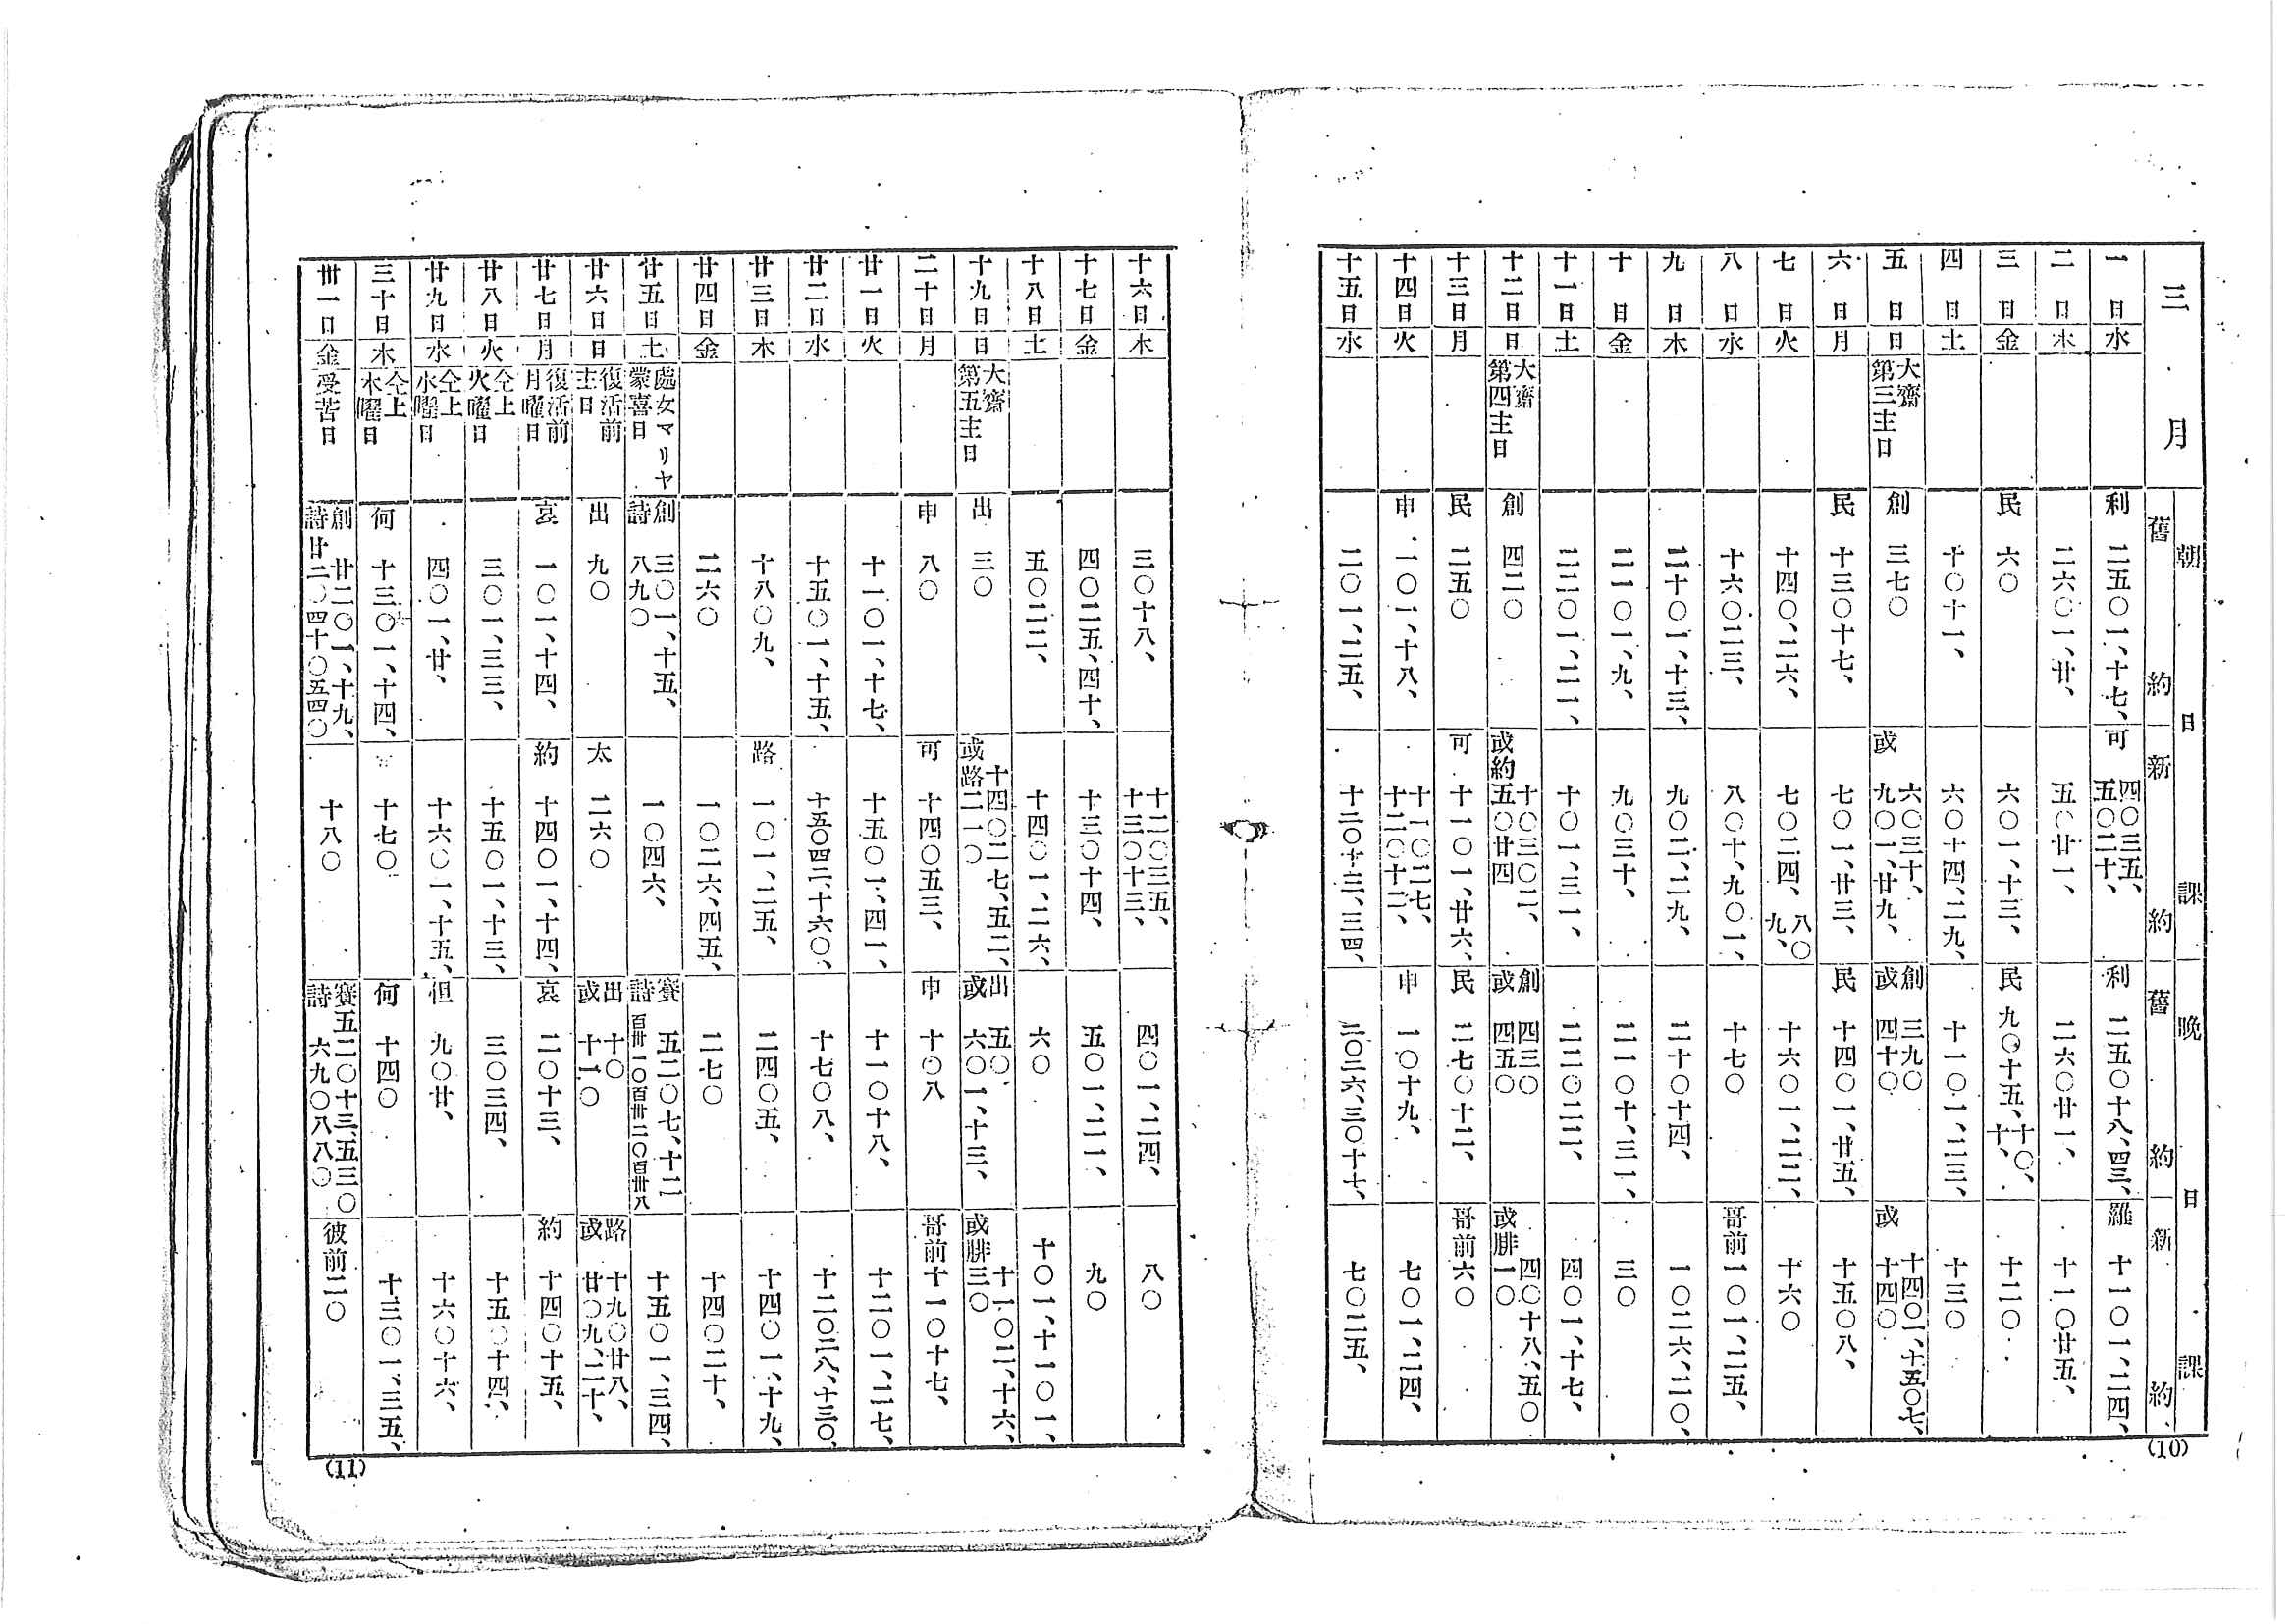 三月
朝日課
晩日課
舊約
新約
舊約
新約
一日 水 利 二五〇一、十七、 可 四〇三五、五〇二十、 利 二五〇十八、四三、 羅 十一〇一、二四、
二日 木 二六〇一、廿、 五〇廿一、 二六〇廿一、 十一〇廿五、
三日 金 民 六〇 六〇一、十三、 民 九〇十五、十〇、十、 十二〇
四日 土 十〇十一、 六〇十四、二九、 十一〇一、二三、 十三〇
五日 日 大齋第三主日 創 三七〇 六〇三十、或九〇一、廿九、 創 三九〇 或 四十〇 十四〇一、十五〇七、或 十四〇
六日 月 民 十三〇十七、 七〇一、廿三、 民 十四〇一、廿五、 十五〇八、
七日 火 十四〇、二六、 七〇二四、八〇九、 十六〇一、二二、 十六〇
八日 水 十六〇二三、 八〇十、九〇一、 十七〇 哥前 一〇一、二五、
九日 木 二十〇一、十三、 九〇二、二九、 二十〇十四、 一〇二六、二〇、
十日 金 二一〇一、九、 九〇三十、 二一〇十、三一、 三〇
十一日 土 二二〇一、二一、 十〇一、三一、 二二〇二二、 四〇一、十七、
十二日 日 大齋第四主日 創 四二〇 十〇三〇二、或約五〇廿四 創 四三〇 或 四五〇 四〇十八、五〇 或腓 一〇
十三日 月 民 二五〇 可 十一〇一、廿六、 民 二七〇十二、 哥前 六〇
十四日 火 申 一〇一、十八、 十一〇二七、十二〇十二、 申 一〇十九、 七〇一、二四、
十五日 水 二〇一、二五、 十二〇十三、三四、 二〇二六、三〇十七、 七〇二五、
(10)
十六日 木 三〇十八、 十二〇三五、十三〇十三、 四〇一、二四、 八〇
十七日 金 四〇二五、四十、 十三〇十四、 五〇一、二一、 九〇
十八日 土 五〇二二、 十四〇一、二六、 六〇 十〇一、十一〇一、
十九日 日 大齋第五主日 出 三〇 十四〇二七、五二、或路二一〇 出 五〇 或 六〇一、十三、 十一〇二、十六、或腓三〇
二十日 月 申 八〇 可 十四〇五三、 申 十〇八 哥前 十一〇十七、
廿一日 火 十一〇一、十七、 十五〇一、四一、 十一〇十八、 十二〇一、二七、
廿二日 水 十五〇一、十五、 十五〇四二、十六〇、 十七〇八、 十二〇二八、十三〇、
廿三日 木 十八〇九、 路 一〇一、二五、 二四〇五、 十四〇一、十九、
廿四日 金 二六〇 一〇二六、四五、 二七〇 十四〇二十、
廿五日 土 處女マリヤ蒙喜日 創 三〇一、十五、 詩 八九〇 一〇四六、 賽 五二〇七、十二 詩 百卅一〇百卅二〇百卅八 十五〇一、三四、
廿六日 日 復活前主日 出 九〇 太 二六〇 出 十〇 或 十一〇 路 十九〇廿八、或 廿〇九、二十、
廿七日 月 復活前月曜日 哀 一〇一、十四、 約 十四〇一、十四、 哀 二〇十三、 約 十四〇十五、
廿八日 火 仝上火曜日 三〇一、三三、 十五〇一、十三、 三〇三四、 十五〇十四、
廿九日 水 仝上水曜日 四〇一、廿、 十六〇一、十五、 但 九〇廿、 十六〇十六、
三十日 木 仝上木曜日 何 十三〇一、十四、 十七〇 何 十四〇 十三〇一、三五、
卅一日 金 受苦日 創 廿二〇一、十九、 詩 廿二〇四十〇五四〇 十八〇 賽 五二〇十三、五三〇 詩 六九〇八八〇 彼前 二〇
(11)